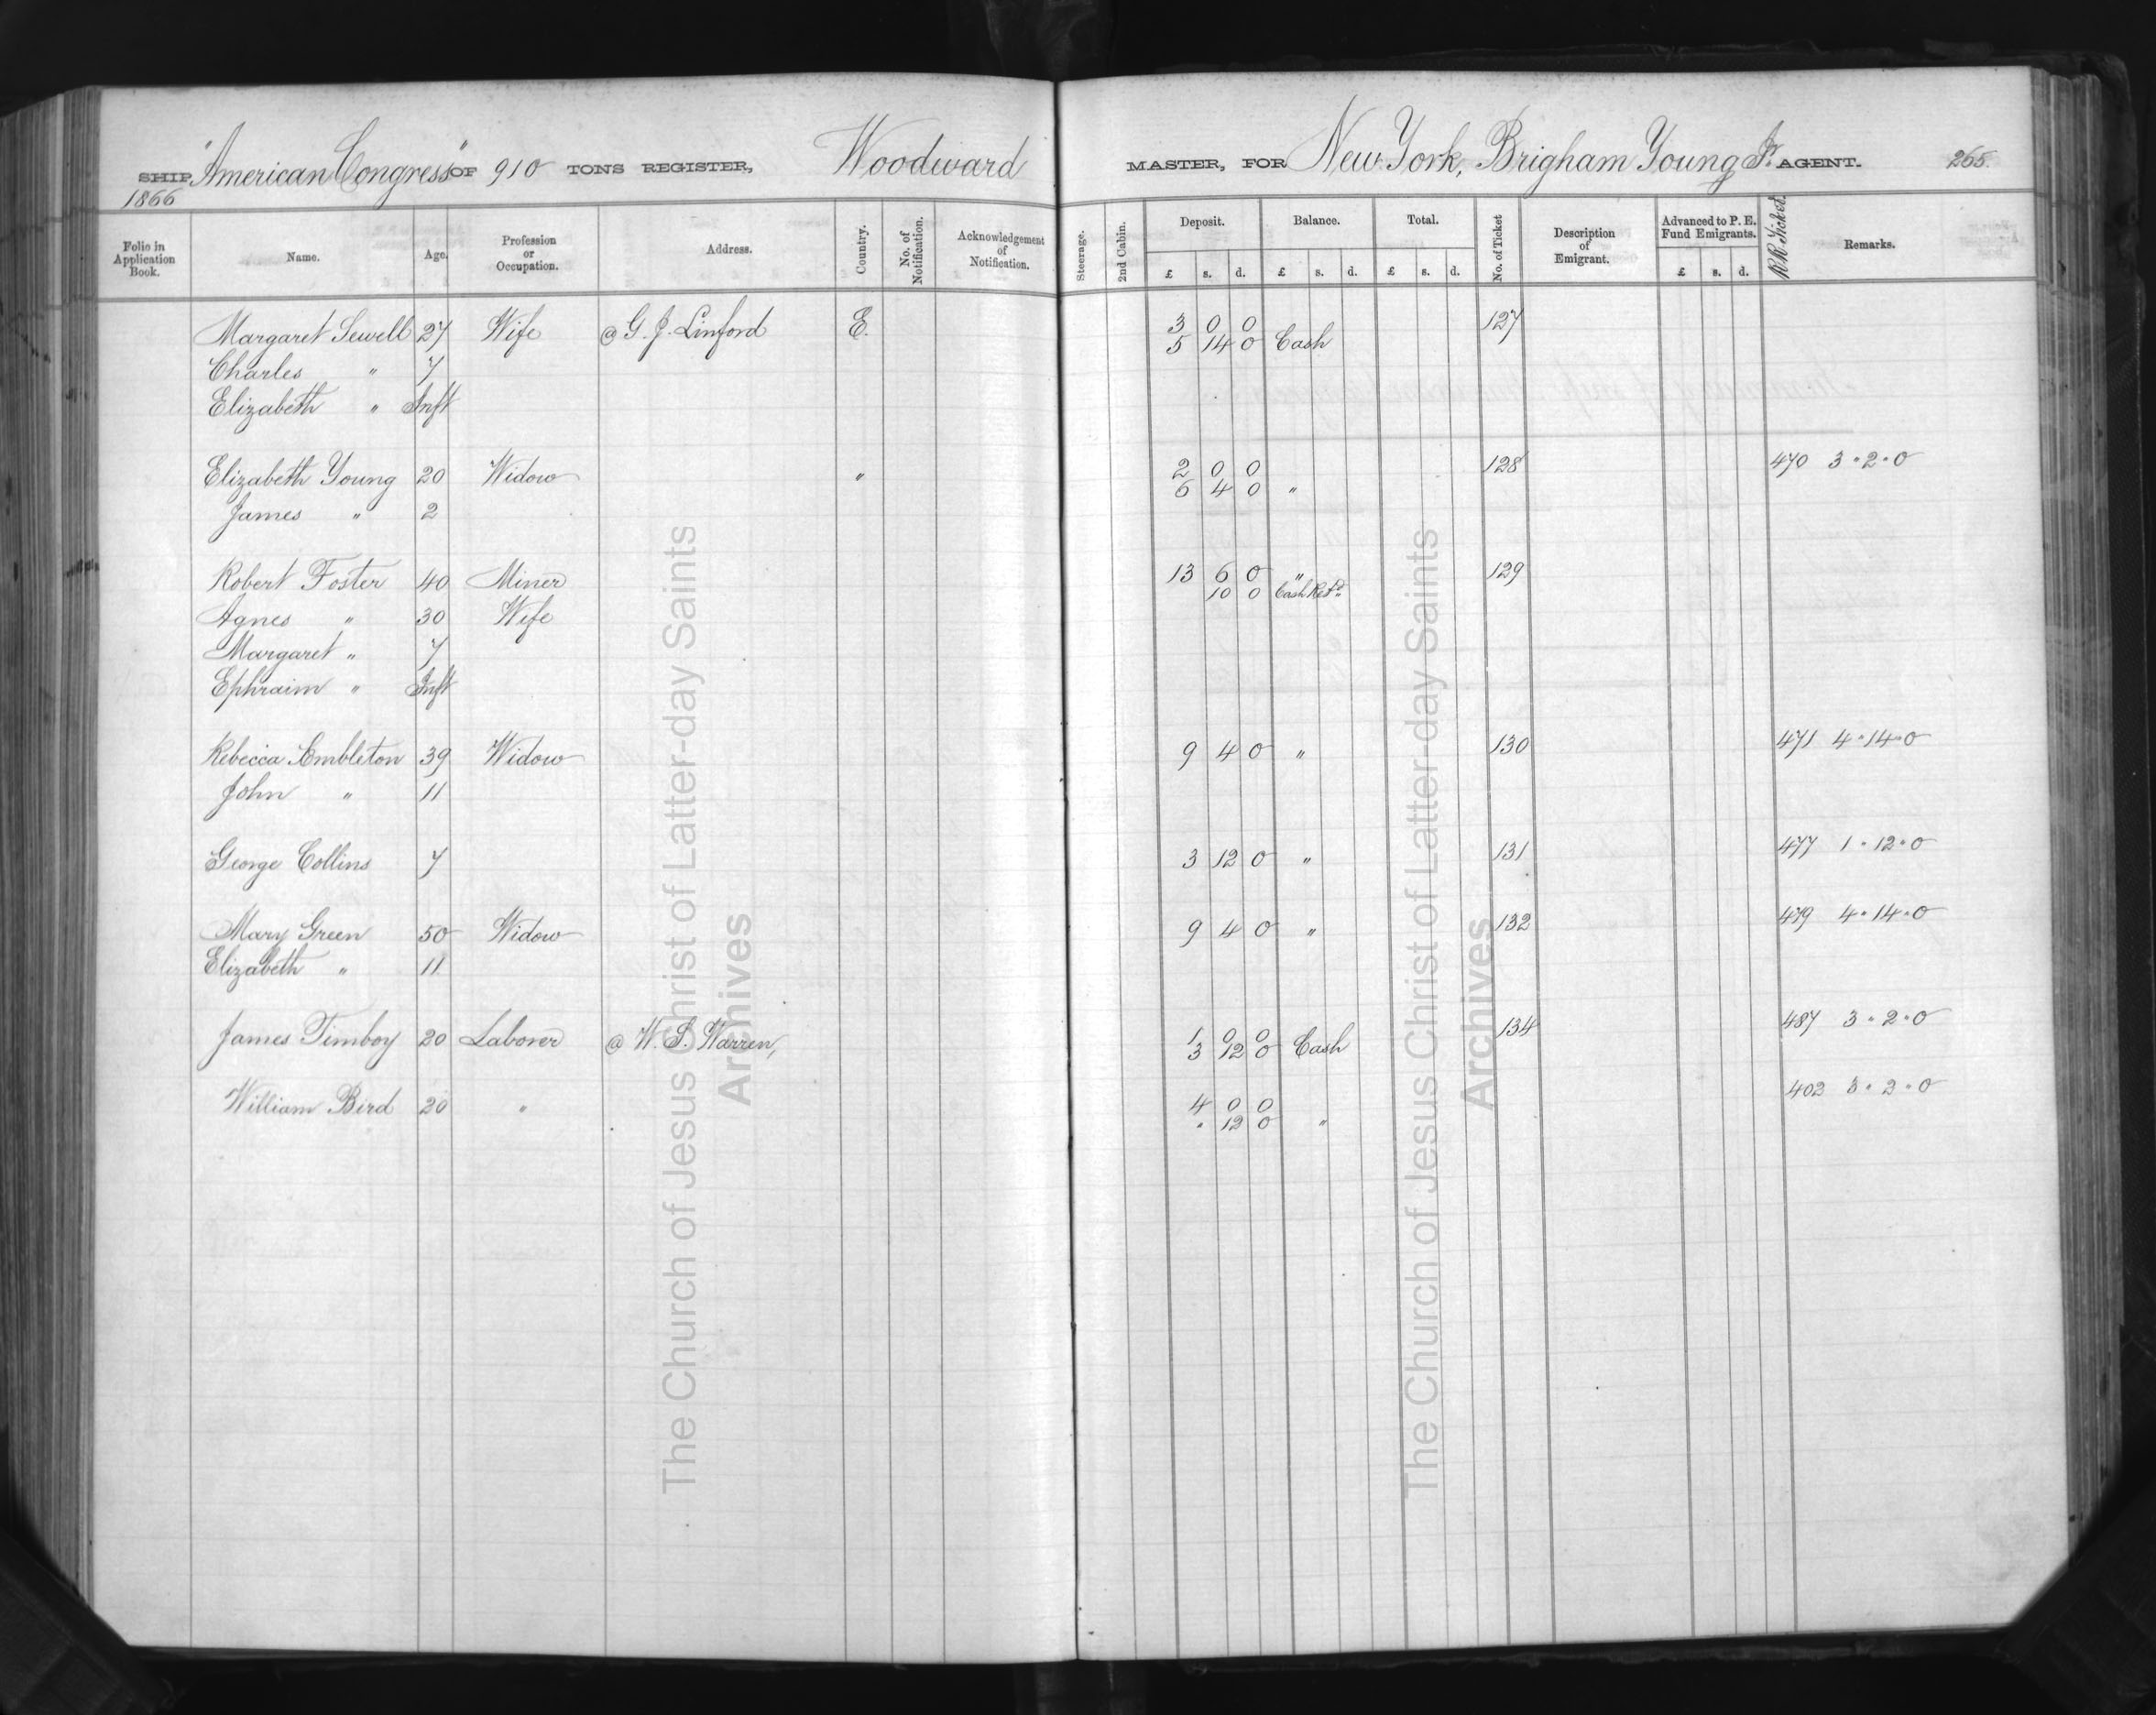 SHIP "American Congress" OF 910 TONS REGISTER, Woodward MASTER, FOR New York, Brigham Young Jr. AGENT. 265.
1866
Folio in Application Book. Name. Age. Profession or Occupation. Address. Country. No. of Notification. Acknowledgement of Notification. Steerage. 2nd Cabin. Deposit. Balance. Total. No. of Ticket Description of Emigrant. Advanced to P. E. Fund Emigrants. RR. Ticket. Remarks.
£ s. d. £ s. d. £ s. d. £ s. d.
Margaret Sewell 27 Wife @ G. J. Linford E. 3 0 0 127
5 14 0 Cash
Charles " 7
Elizabeth " Inft
Elizabeth Young 20 Widow " 2 0 0 128 470 3 " 2 " 0
6 4 0 "
James " 2
Robert Foster 40 Miner 13 6 0 " 129
10 0 Cash Retd.
Agnes " 30 Wife
Margaret " 7
Ephraim " Inft
Rebecca Embleton 39 Widow 9 4 0 " 130 471 4 " 14 " 0
John " 11
George Collins 7 3 12 0 " 131 477 1 " 12 " 0
Mary Green 50 Widow 9 4 0 " 132 479 4 " 14 " 0
Elizabeth " 11
James Timboy 20 Laborer @ W. S. Warren, 1 0 0 134 487 3 " 2 " 0
3 12 0 Cash
William Bird 20 " 4 0 0 402 3 " 2 " 0
" 12 0 "
The Church of Jesus Christ of Latter-day Saints
Archives
The Church of Jesus Christ of Latter-day Saints
Archives